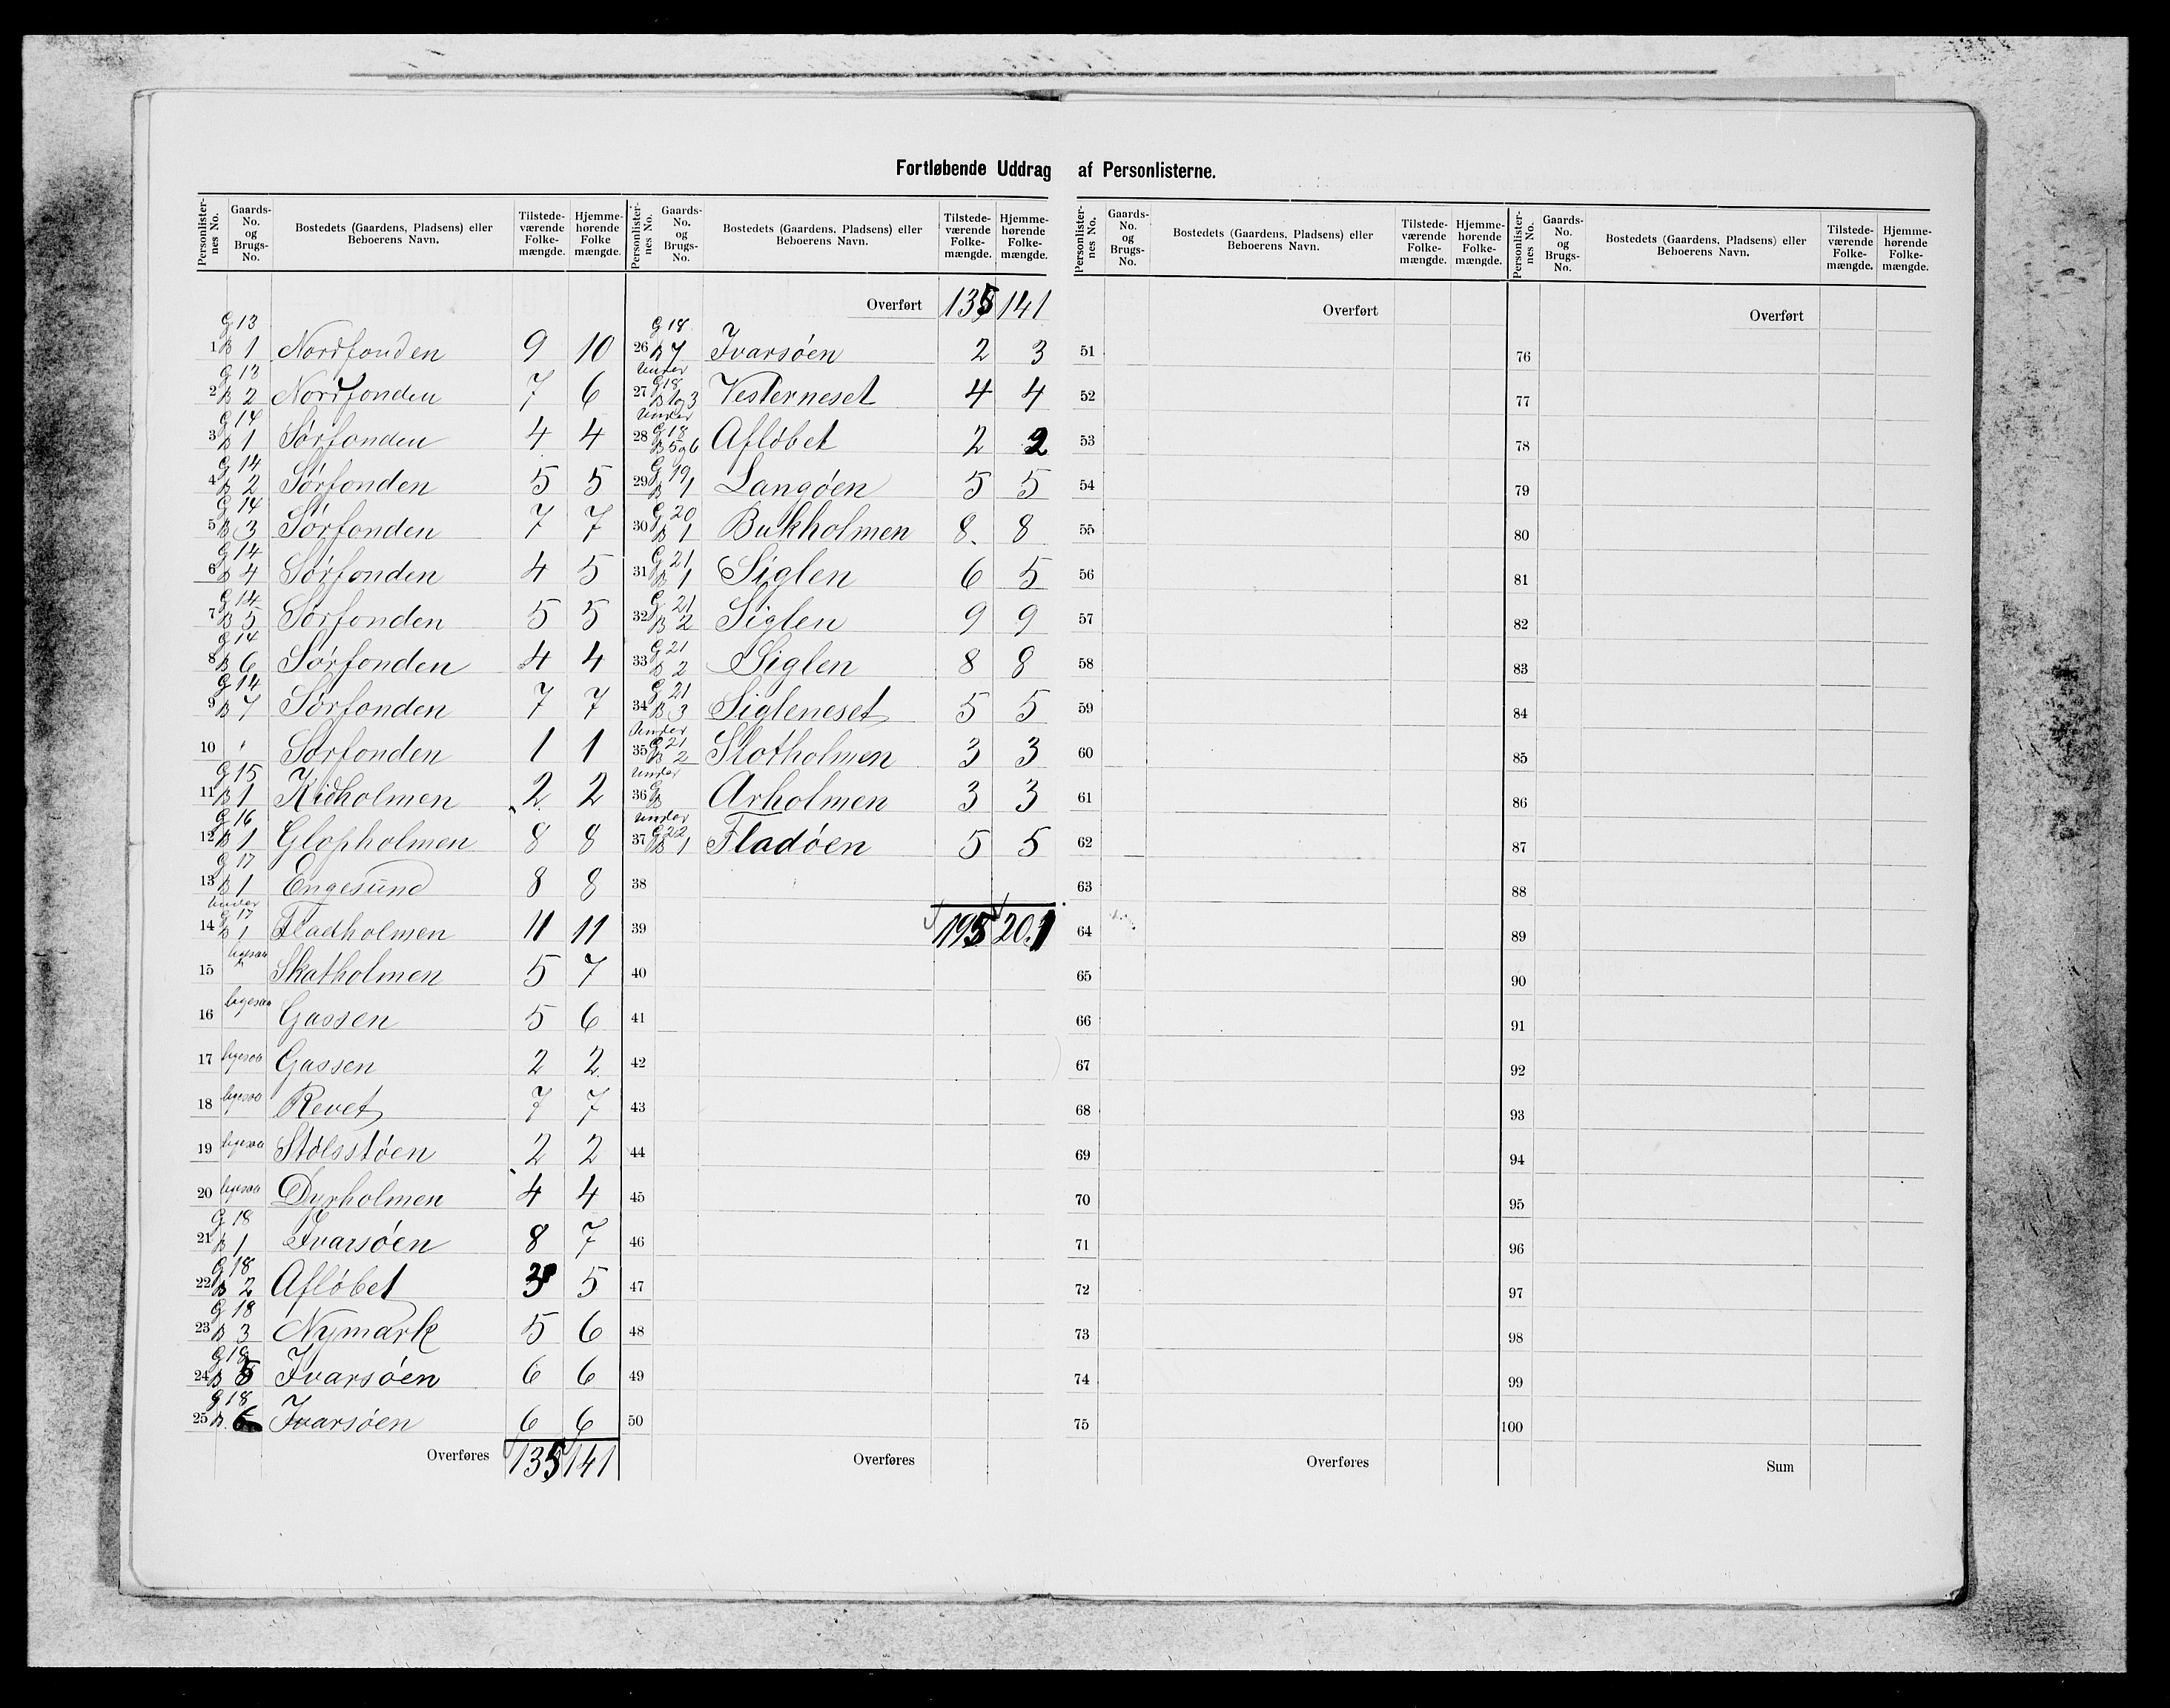 Fortløbende Uddrag af Personlisterne.
Personlisternes No. | Gaards-No. og Brugs-No. | Bostedets (Gaardens, Pladsens) eller Beboerens Navn. | Tilstedeværende Folkemængde. | Hjemmehørende Folkemængde.
1 G 13 B 1 Nordfonden 9 10
2 G 13 B 2 Nordfonden 7 6
3 G 14 B 1 Sørfonden 4 4
4 G 14 B 2 Sørfonden 5 5
5 G 14 B 3 Sørfonden 7 7
6 G 14 B 4 Sørfonden 4 5
7 G 14 B 5 Sørfonden 5 5
8 G 14 B 6 Sørfonden 4 4
9 G 14 B 7 Sørfonden 7 7
10 " Sørfonden 1 1
11 G 15 B 1 Kidholmen 2 2
12 G 16 B 1 Glopholmen 8 8
13 G 17 B 1 Engesund 8 8
14 Under G 17 B 1 Fladholmen 11 11
15 ligesaa Skatholmen 5 7
16 ligesaa Gassen 5 6
17 ligesaa Gassen 2 2
18 ligesaa Revet 7 7
19 ligesaa Stølsstøen 2 2
20 ligesaa Dyrholmen 4 4
21 G 18 B 1 Ivarsøen 8 7
22 G 18 B 2 Afløbet 3 5
23 G 18 B 3 Nymark 5 6
24 G 18 B 5 Ivarsøen 6 6
25 G 18 B. 6 Ivarsøen 6 6
Overføres 135 141
Personlisternes No. | Gaards-No. og Brugs-No. | Bostedets (Gaardens, Pladsens) eller Beboerens Navn. | Tilstedeværende Folkemængde. | Hjemmehørende Folkemængde.
Overført 135 141
26 G 18 B 7 Ivarsøen 2 3
27 Under G 18 B 1 og 3 Vesterneset 4 4
28 Under G 18 B 5 og 6 Afløbet 2 2
29 G 19 B 1 Langøen 5 5
30 G 20 B 1 Bukholmen 8 8
31 G 21 B 1 Siglen 6 5
32 G 21 B 2 Siglen 9 9
33 G 21 B 2 Siglen 8 8
34 G 21 B 3 Sigleneset 5 5
35 Under G 21 B 2 Slotholmen 3 3
36 Under G B Arholmen 3 3
37 Under G 22 B 1 Fladøen 5 5
38
39 195 201
40
41
42
43
44
45
46
47
48
49
50
Overføres
Personlisternes No. | Gaards-No. og Brugs-No. | Bostedets (Gaardens, Pladsens) eller Beboerens Navn. | Tilstedeværende Folkemængde. | Hjemmehørende Folkemængde.
Overført
51
52
53
54
55
56
57
58
59
60
61
62
63
64
65
66
67
68
69
70
71
72
73
74
75
Overføres
Personlisternes No. | Gaards-No. og Brugs-No. | Bostedets (Gaardens, Pladsens) eller Beboerens Navn. | Tilstedeværende Folkemængde. | Hjemmehørende Folkemængde.
Overført
76
77
78
79
80
81
82
83
84
85
86
87
88
89
90
91
92
93
94
95
96
97
98
99
100
Sum